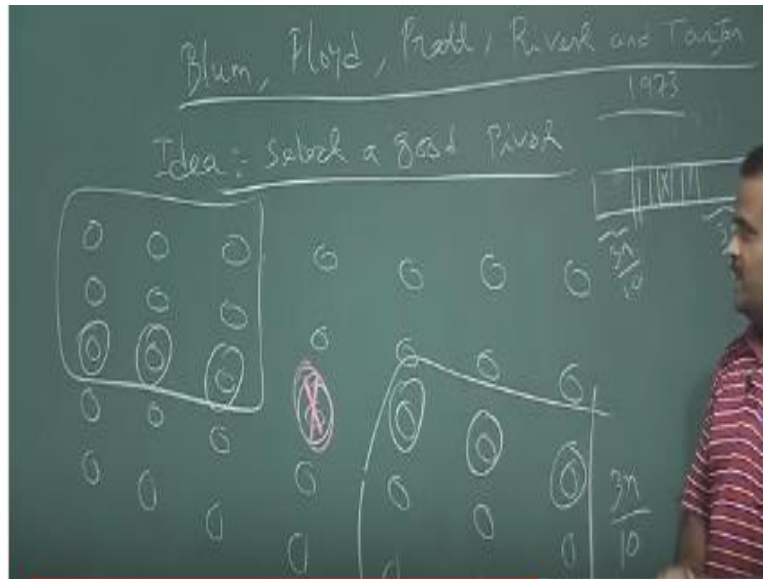 Blum, Floyd, Pratt, Rivest and Tarjan
1973
Idea: Select a good Pivot
x
3n
10
3n
10